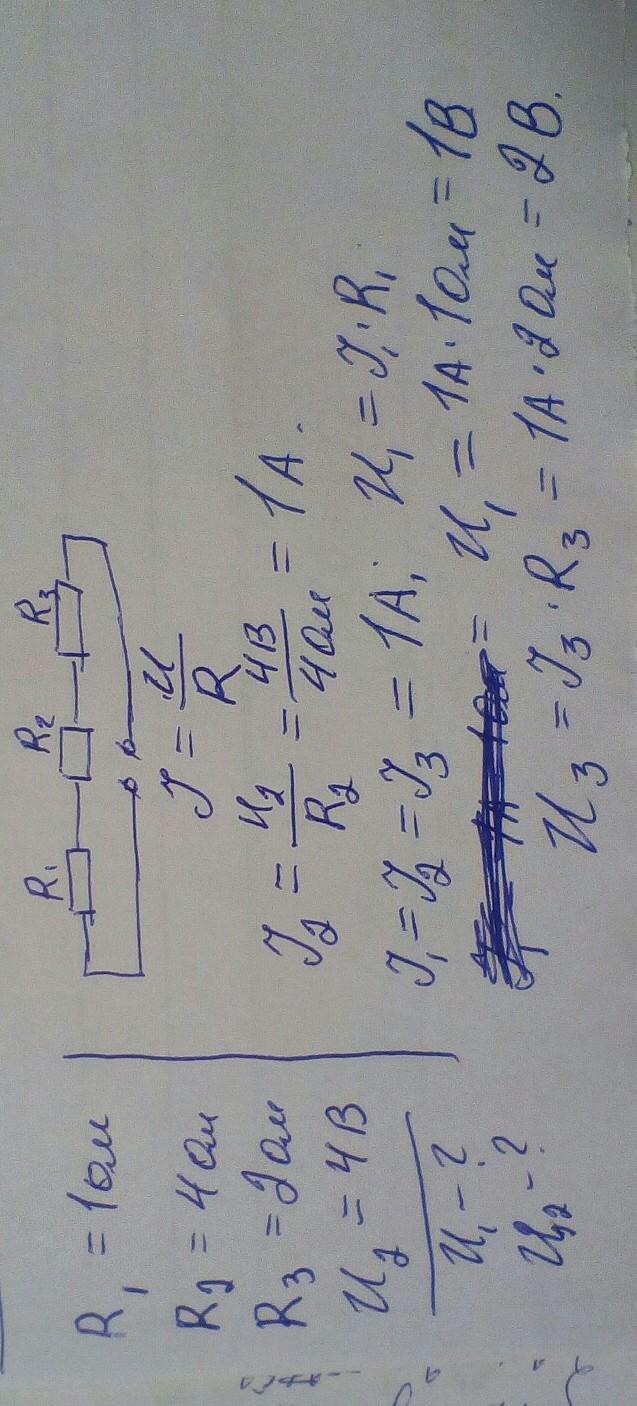 R₁ = 1 Ом
R₂ = 4 Ом
R₃ = 2 Ом
U₂ = 4 В
U₁ - ?
U₂ - ?
R₁ R₂ R₃
J = U/R
J₂ = U₂/R₂ = 4В/4Ом = 1А.
J₁ = J₂ = J₃ = 1А; U₁ = J₁·R₁
= U₁ = 1А·1Ом = 1В
U₃ = J₃·R₃ = 1А·2Ом = 2В.